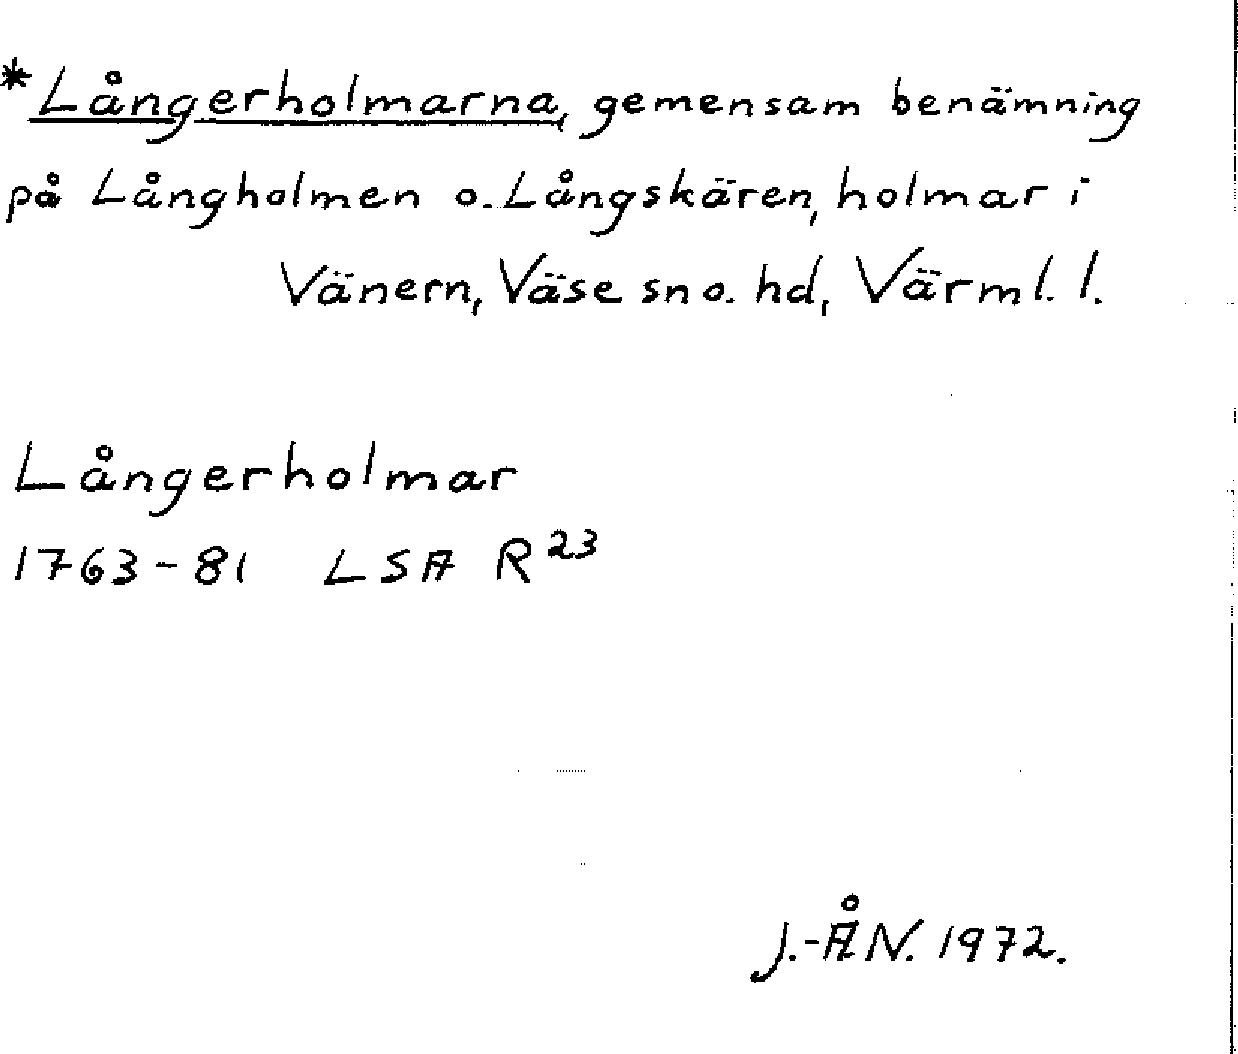 *Långerholmarna, gemensam benämning
på Långholmen o. Långskären, holmar i
Vänern, Väse sn o. hd, Värml. l.
Långerholmar
1763-81 LSA R23
J.-ÅN. 1972.